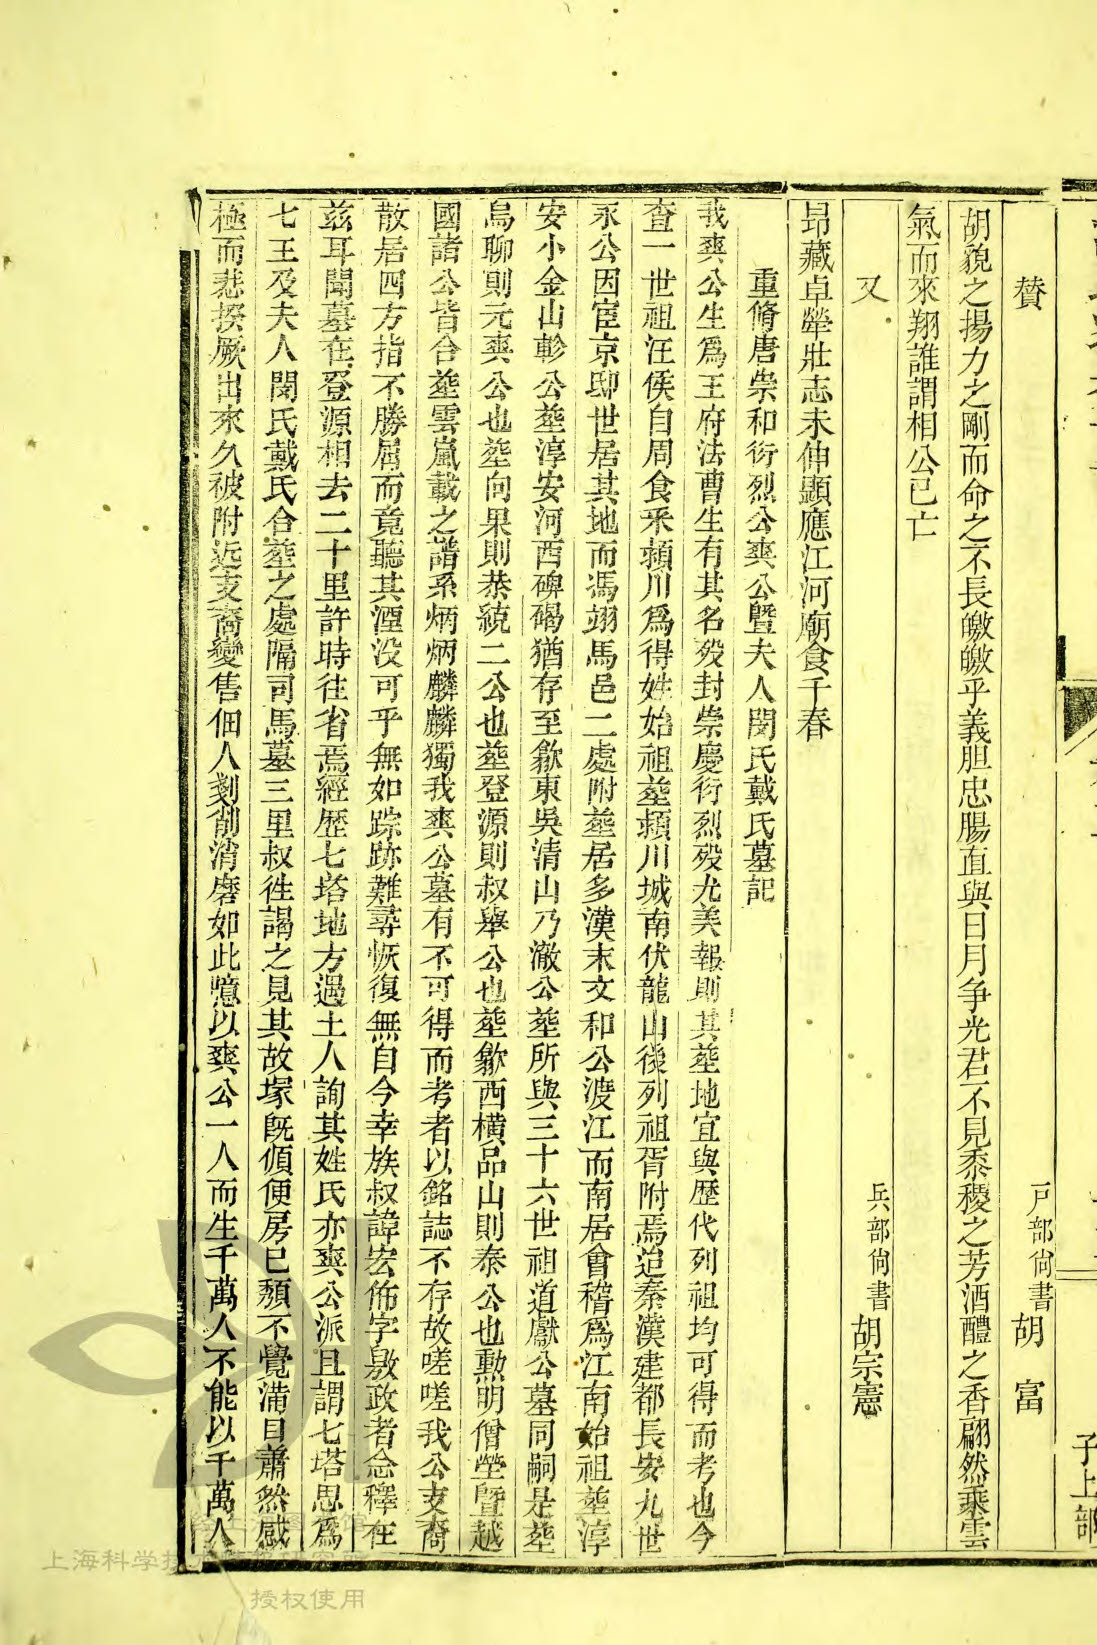 子上部
贊
戶部尙書胡　富
胡貌之揚力之剛而命之不長皦皦乎義胆忠腸直與日月争光君不見黍稷之芳酒醴之香翩然乗雲
氣而來翔誰謂相公已亡
又
兵部尙書胡宗憲
昂藏卓犖壯志未伸顯應江河廟食千春
重脩唐崇和衍烈公爽公曁夫人閔氏戴氏墓記
我爽公生爲王府法曹生有其名歿封崇慶衍烈歿尤美報則其塋地宜與歷代列祖均可得而考也今
查一世祖汪侯自周食采頴川爲得姓始祖塟頴川城南伏龍山後列祖胥附焉迨秦漢建都長安九世
永公因宦京邸世居其地而馮翊馬邑二處附塟居多漢末文和公渡江而南居會稽爲江南始祖塟淳
安小金山軫公塟淳安河西碑碣猶存至歙東吳清山乃澈公塟所與三十六世祖道獻公墓同嗣是塟
烏聊則元爽公也塟向果則恭統二公也塟登源則叔舉公也塟歙西橫品山則泰公也勲明僧瑩曁越
國諸公皆合塟雲嵐載之譜系炳炳麟麟獨我爽公墓有不可得而考者以銘誌不存故嗟嗟我公支裔
散居四方指不勝屈而竟聽其湮没可乎無如踪跡難尋恢復無自今幸族叔諱宏佈字敭政者念釋在
兹耳聞墓在登源相去二十里許時往省焉經歷七塔地方遇土人詢其姓氏亦爽公派且謂七塔思爲
七王及夫人閔氏戴氏合塟之處隔司馬墓三里叔徃謁之見其故塚旣傾便房已頹不覺滿目蕭然感
極而悲揆厥出來久被附近支裔變售佃人剗削消磨如此噫以爽公一人而生千萬人不能以千萬人
上海科学技术
授权使用